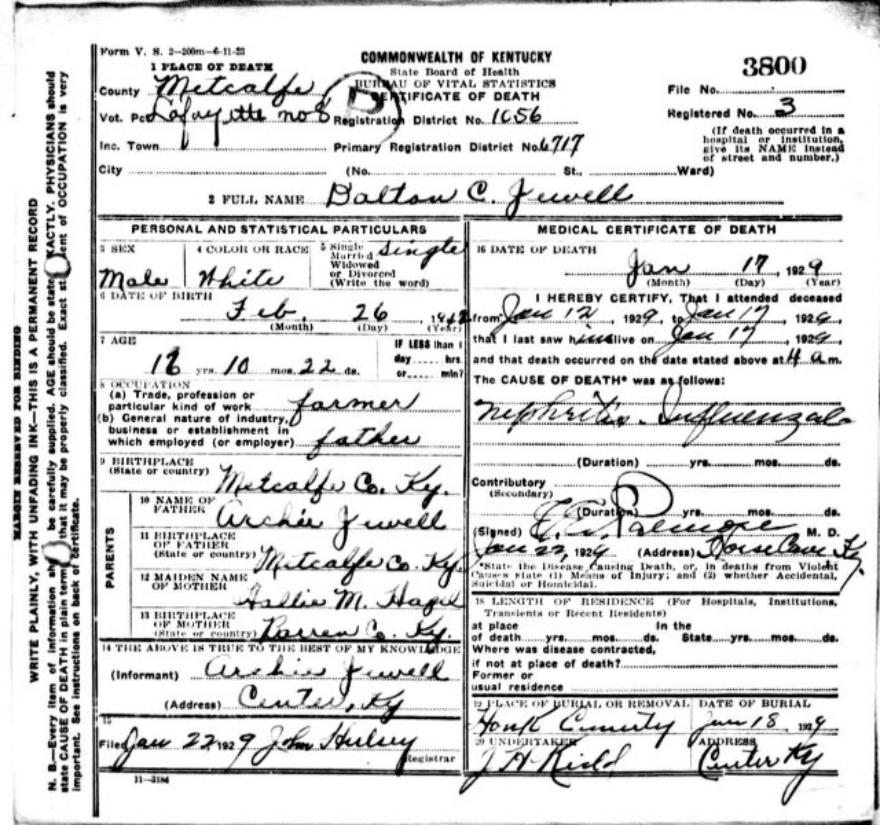 Form V. S. 2—200m—6-11-23
1 PLACE OF DEATH
COMMONWEALTH OF KENTUCKY
State Board of Health
BUREAU OF VITAL STATISTICS
CERTIFICATE OF DEATH
3800
County Metcalfe
File No.
Vot. Pct Lafayette no 8 Registration District No. 1056
Registered No. 3
Inc. Town Primary Registration District No. 6717
(If death occurred in a
hospital or institution,
give its NAME instead
of street and number.)
City (No. St., Ward)
2 FULL NAME Dalton C. Jewell
PERSONAL AND STATISTICAL PARTICULARS
3 SEX Male
4 COLOR OR RACE White
5 Single
Married
Widowed
or Divorced
(Write the word) Single
6 DATE OF BIRTH
Feb. 26
(Month) (Day) (Year)
7 AGE
yrs. 10 mos. 22 ds.
IF LESS than 1
day hrs.
or min?
8 OCCUPATION
(a) Trade, profession or
particular kind of work farmer
(b) General nature of industry,
business or establishment in
which employed (or employer) father
9 BIRTHPLACE
(State or country) Metcalfe Co. Ky.
PARENTS
10 NAME OF
FATHER Archie Jewell
11 BIRTHPLACE
OF FATHER
(State or country) Metcalfe Co. Ky.
12 MAIDEN NAME
OF MOTHER Hallie M.
13 BIRTHPLACE
OF MOTHER
(State or country) Barren Co. Ky.
14 THE ABOVE IS TRUE TO THE BEST OF MY KNOWLEDGE
(Informant) Archie Jewell
(Address) Center, Ky
15
Filed Jan 22 1929 John Hulsey
Registrar
11—3184
MEDICAL CERTIFICATE OF DEATH
16 DATE OF DEATH
Jan 17, 1929
(Month) (Day) (Year)
I HEREBY CERTIFY, That I attended deceased
from Jan 12, 1929, to Jan 17, 1929,
that I last saw him alive on Jan 17, 1929,
and that death occurred on the date stated above at 4 a m.
The CAUSE OF DEATH* was as follows:
Nephritis. Influenzal
(Duration) yrs. mos. ds.
Contributory
(Secondary)
(Duration) yrs. mos. ds.
(Signed) Palmore M. D.
Jan 22, 1929 (Address) Horse Cave Ky.
*State the Disease Causing Death, or, in deaths from Violent
Causes state (1) Means of Injury; and (2) whether Accidental,
Suicidal or Homicidal.
18 LENGTH OF RESIDENCE (For Hospitals, Institutions,
Transients or Recent Residents)
at place In the
of death yrs. mos. ds. State yrs. mos. ds.
Where was disease contracted,
if not at place of death?
Former or
usual residence
19 PLACE OF BURIAL OR REMOVAL DATE OF BURIAL
Jan 18, 1929
20 UNDERTAKER ADDRESS
J A Kidd Center Ky
MARGIN RESERVED FOR BINDING
WRITE PLAINLY, WITH UNFADING INK—THIS IS A PERMANENT RECORD
N. B.—Every item of information be carefully supplied. AGE should be stated EXACTLY. PHYSICIANS should
state CAUSE OF DEATH in plain terms that it may be properly classified. Exact of OCCUPATION is very
important. See instructions on back of certificate.